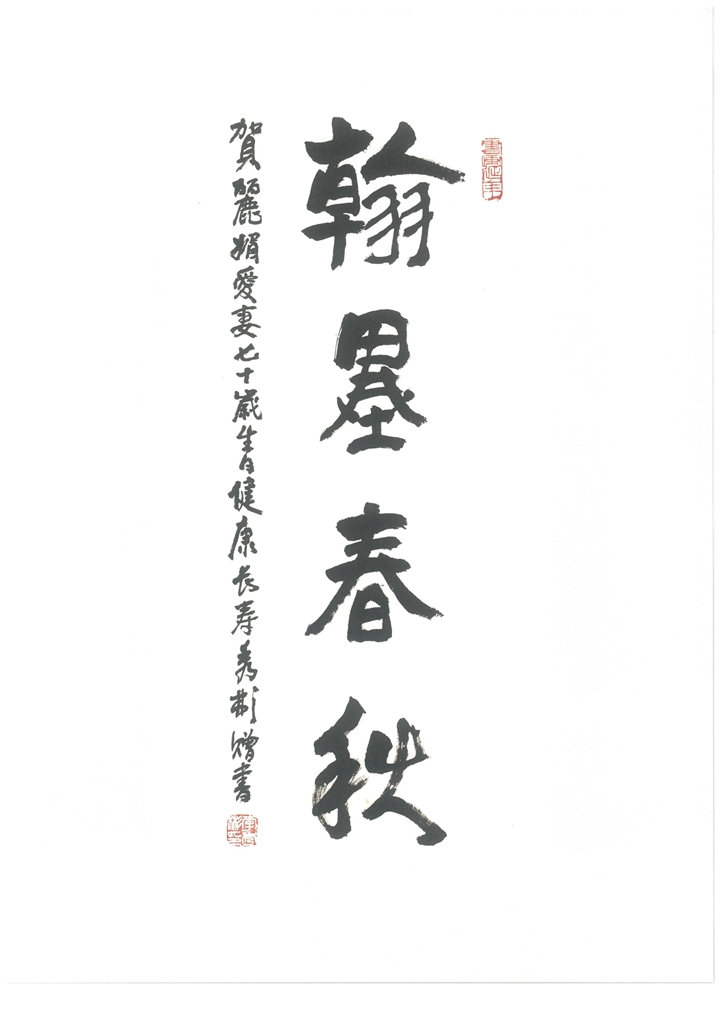 翰墨春秋
賀麗娟愛妻七十歲生日健康長壽秀彬贈書